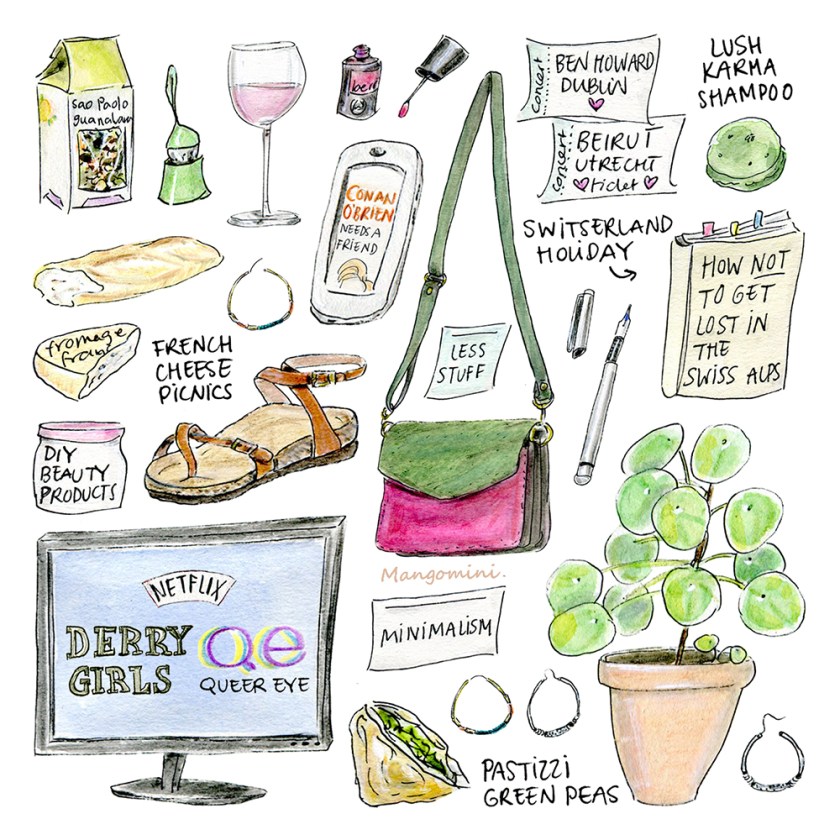 sao Paolo
LUSH
KARMA
SHAMPOO
concert
BEN HOWARD
DUBLIN
concert
BEIRUT
UTRECHT
ticket
CONAN
O'BRIEN
NEEDS A
FRIEND
SWITSERLAND
HOLIDAY
HOW NOT
TO GET
LOST IN
THE
SWISS ALPS
LESS
STUFF
fromage
FRENCH
CHEESE
PICNICS
DIY
BEAUTY
PRODUCTS
Mangomini.
NETFLIX
DERRY
GIRLS
Qe
QUEER EYE
MINIMALISM
PASTIZZI
GREEN PEAS